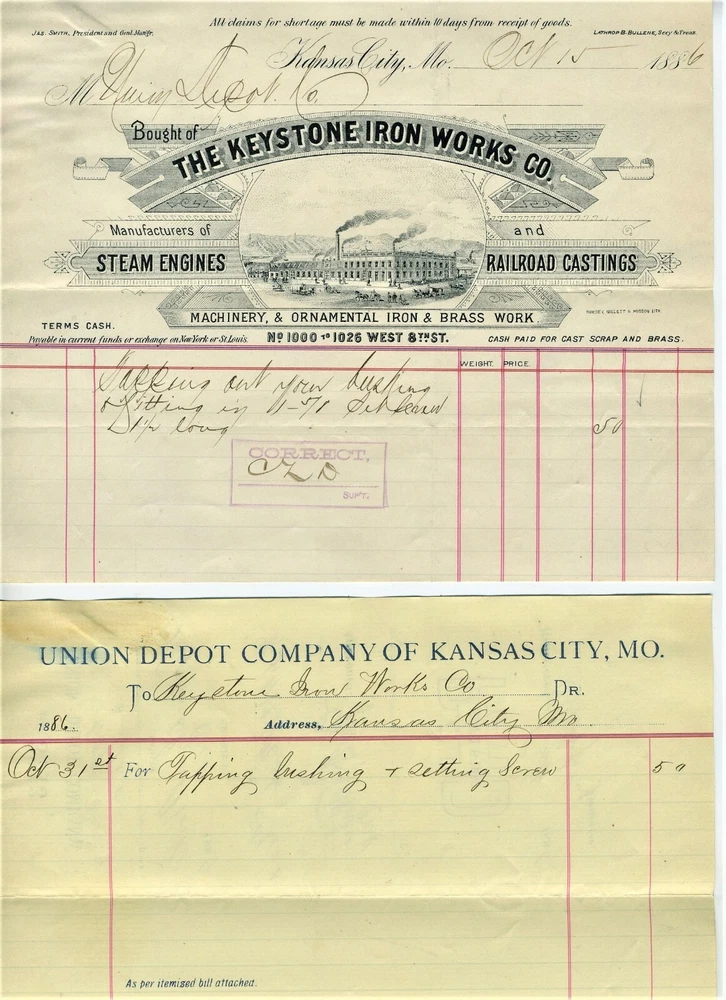 All claims for shortage must be made within 10 days from receipt of goods.
JAS. SMITH, President and Genl. Mangr.
LATHROP B. BULLENE, Secy & Treas.
Kansas City, Mo. Oct 15 1886
M Union Depot Co.
Bought of
THE KEYSTONE IRON WORKS CO.
Manufacturers of
and
STEAM ENGINES
RAILROAD CASTINGS
MACHINERY, & ORNAMENTAL IRON & BRASS WORK
RAMSEY, MILLETT & HUDSON LITH.
TERMS CASH.
Payable in current funds or exchange on New York or St. Louis.
No 1000 TO 1026 WEST 8TH ST.
CASH PAID FOR CAST SCRAP AND BRASS.
WEIGHT. PRICE.
Tapping out your bushing
& fitting in Set Screw
1½ long 50
CORRECT,
SUPT.
UNION DEPOT COMPANY OF KANSAS CITY, MO.
To Keystone Iron Works Co DR.
1886. Address, Kansas City Mo.
Oct 31st For Tapping bushing + setting Screw 50
As per itemised bill attached.